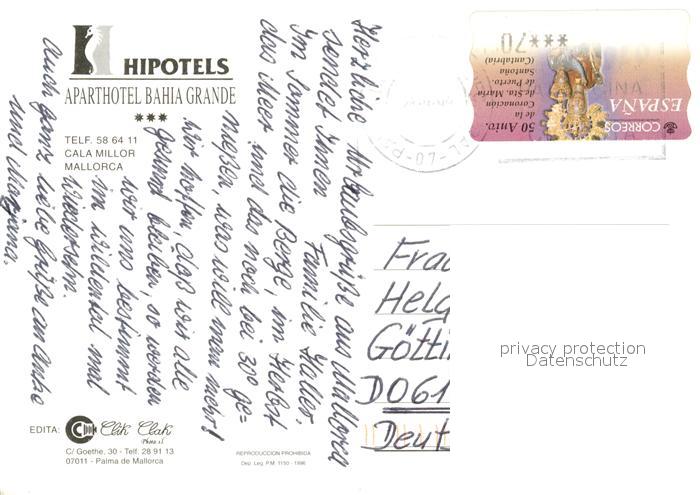 HIPOTELS
APARTHOTEL BAHIA GRANDE
***
TELF. 58 64 11
CALA MILLOR
MALLORCA
Herzliche Urlaubsgrüße aus Mallorca
sendet Ihnen Familie Haller.
Im Sommer die Berge, im Herbst
das Meer und das noch bei 30° ge-
nießen, was will man mehr!
Wir hoffen, daß wir alle
gesund bleiben, so werden
wir uns bestimmt
im Wildental mal
wiedersehn.
Auch ganz liebe Grüße an Antje
und Mariana.
EDITA:
Clik Clak
Photo s.l.
C/ Goethe, 30 - Telf. 28 91 13
07011 - Palma de Mallorca
REPRODUCCION PROHIBIDA
Dep. Leg. P.M. 1150 - 1996
***70
50 Aniv.
de la
Coronación
de Sta. María
de Puerto.
Santoña
(Cantabria)
CORREOS
ESPAÑA
Frau
Helg
Götti
D061
Deut
privacy protection
Datenschutz